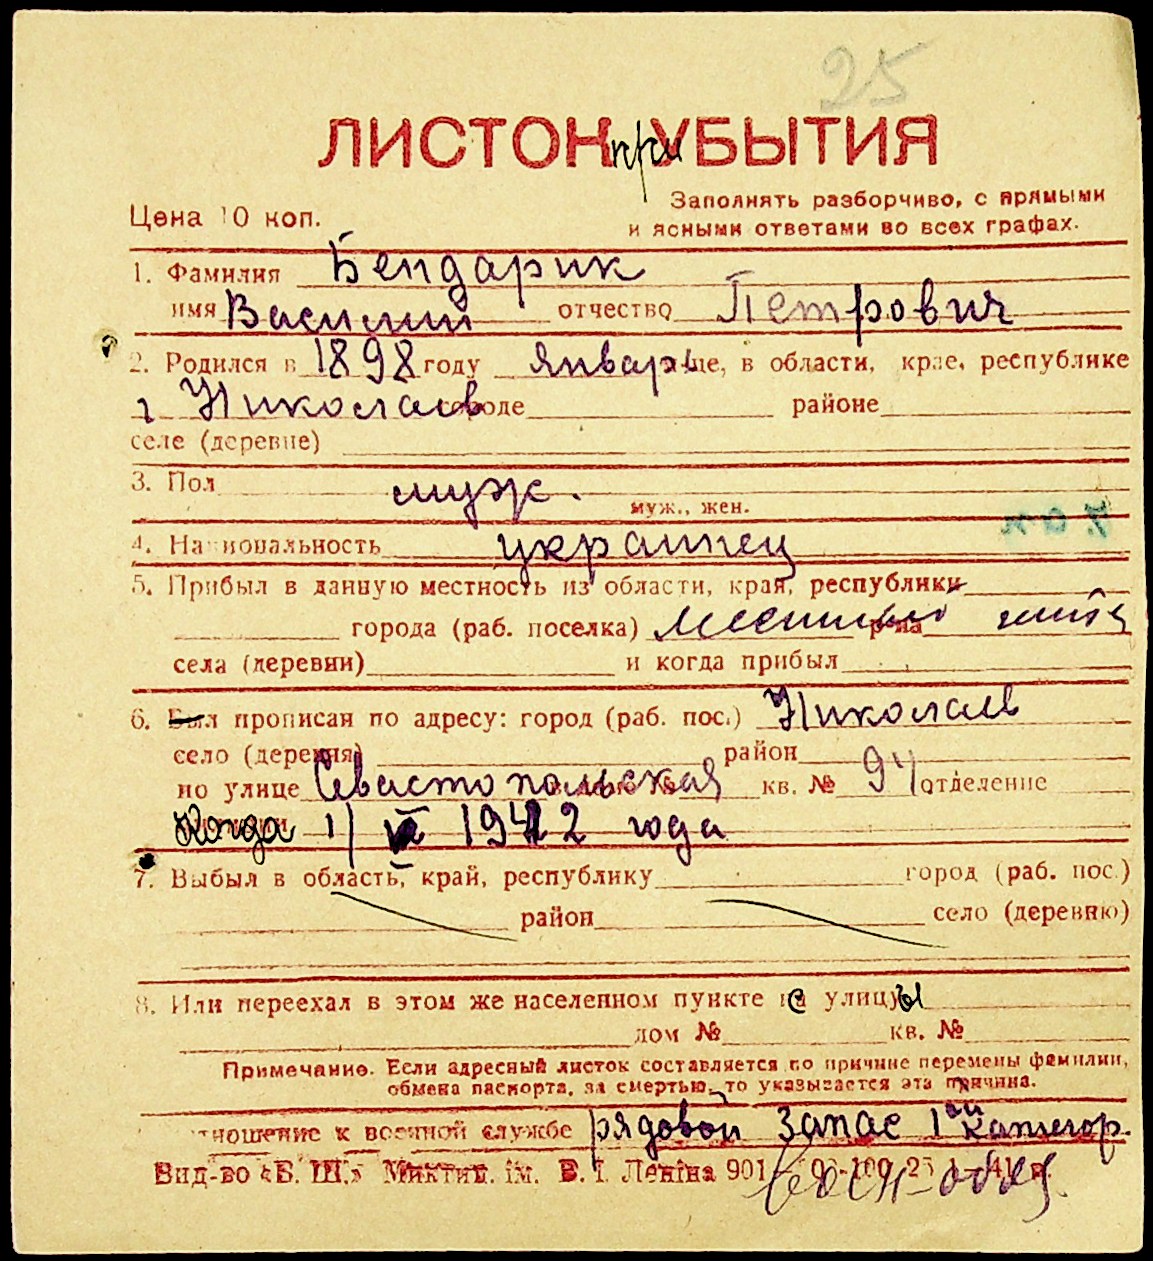 25
ЛИСТОК при УБЫТИЯ
Цена 10 коп.
Заполнять разборчиво, с прямыми
и ясными ответами во всех графах.
1. Фамилия Бендарик
имя Василий отчество Петрович
2. Родился в 1898 году январь це, в области, крае, республике
г Николаев городе районе
селе (деревне)
3. Пол муж.
муж., жен.
4. Национальность украинец
5. Прибыл в данную местность из области, края, республики
города (раб. поселка) Местный р-на
села (деревни) и когда прибыл
6. Был прописан по адресу: город (раб. пос.) Николаев
село (деревня) район
по улице Севастопольская кв. № 94 отделение
Когда 11 1942 года
7. Выбыл в область, край, республику город (раб. пос.)
район село (деревню)
8. Или переехал в этом же населенном пункте с улицы
дом № кв. №
Примечание. Если адресный листок составляется по причине перемены фамилии,
обмена паспорта, за смертью, то указывается эта причина.
отношение к военной службе рядовой запас 1ой категор.
Вид-во «Б. Ш.» Миктип. ім. В. І. Леніна 901